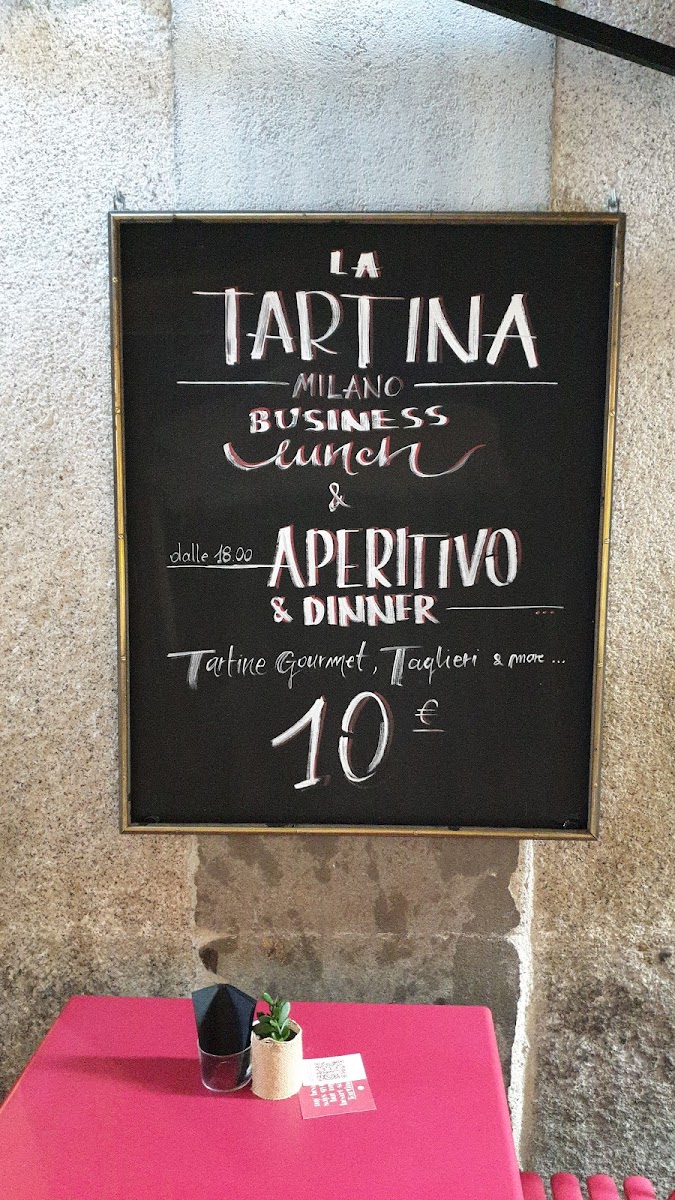 LA
TARTINA
MILANO
BUSINESS
lunch
&
dalle 18.00 APERITIVO
& DINNER ...
Tartine Gourmet, Taglieri & more ...
10 €